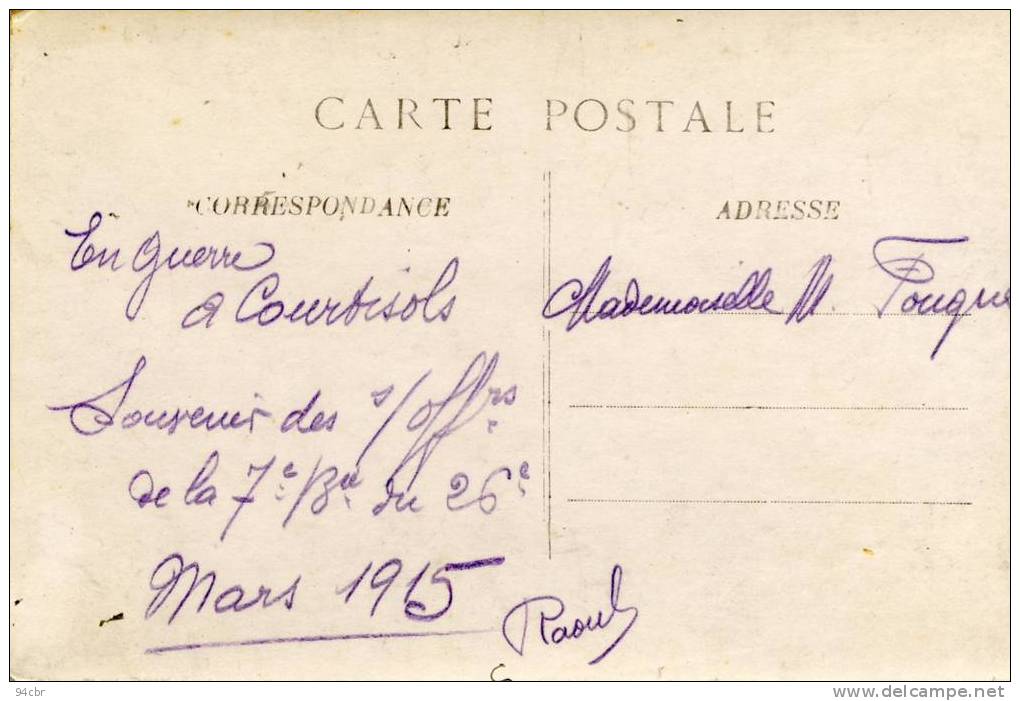 CARTE POSTALE
CORRESPONDANCE
En guerre
a Courtisols
Souvenir des s/offrs
de la 7e Bie du 26e
Mars 1915
Raoul
ADRESSE
Mademoiselle M. Fouque
94cbr
http://www.delcampe.net